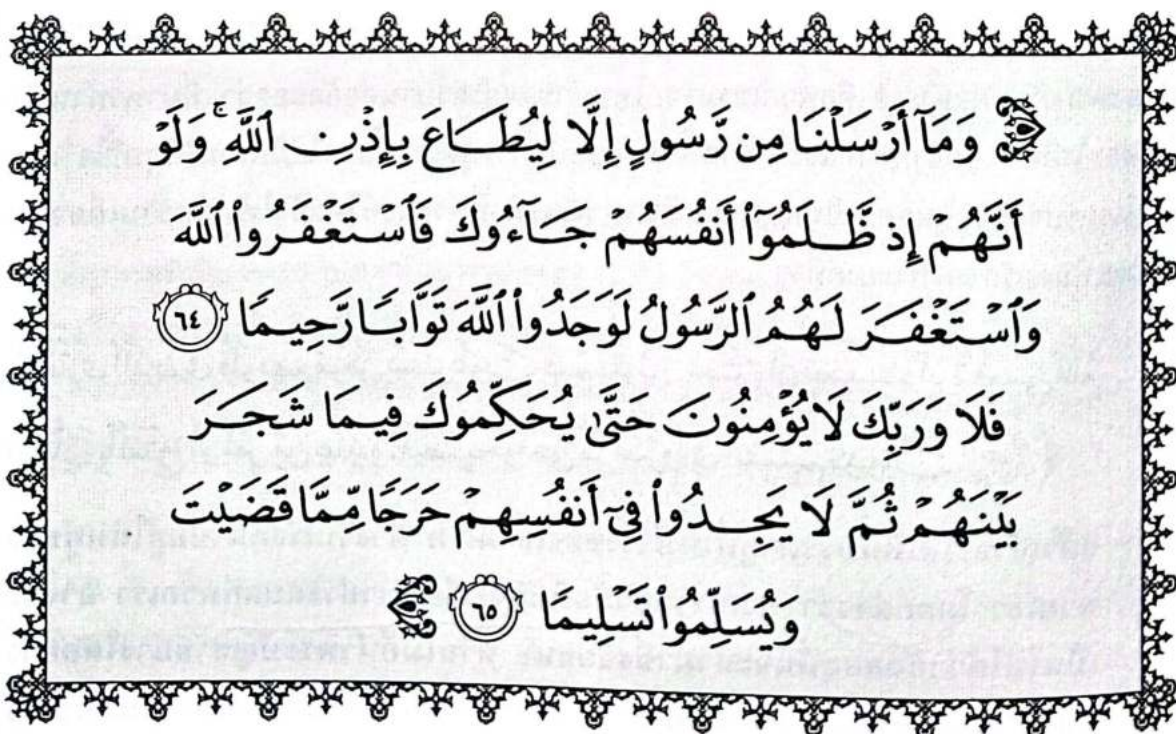 وَمَآ أَرْسَلْنَا مِن رَّسُولٍ إِلَّا لِيُطَاعَ بِإِذْنِ ٱللَّهِ ۚ وَلَوْ
أَنَّهُمْ إِذ ظَّلَمُوٓا۟ أَنفُسَهُمْ جَآءُوكَ فَٱسْتَغْفَرُوا۟ ٱللَّهَ
وَٱسْتَغْفَرَ لَهُمُ ٱلرَّسُولُ لَوَجَدُوا۟ ٱللَّهَ تَوَّابًا رَّحِيمًا ٦٤
فَلَا وَرَبِّكَ لَا يُؤْمِنُونَ حَتَّىٰ يُحَكِّمُوكَ فِيمَا شَجَرَ
بَيْنَهُمْ ثُمَّ لَا يَجِدُوا۟ فِىٓ أَنفُسِهِمْ حَرَجًا مِّمَّا قَضَيْتَ
وَيُسَلِّمُوا۟ تَسْلِيمًا ٦٥